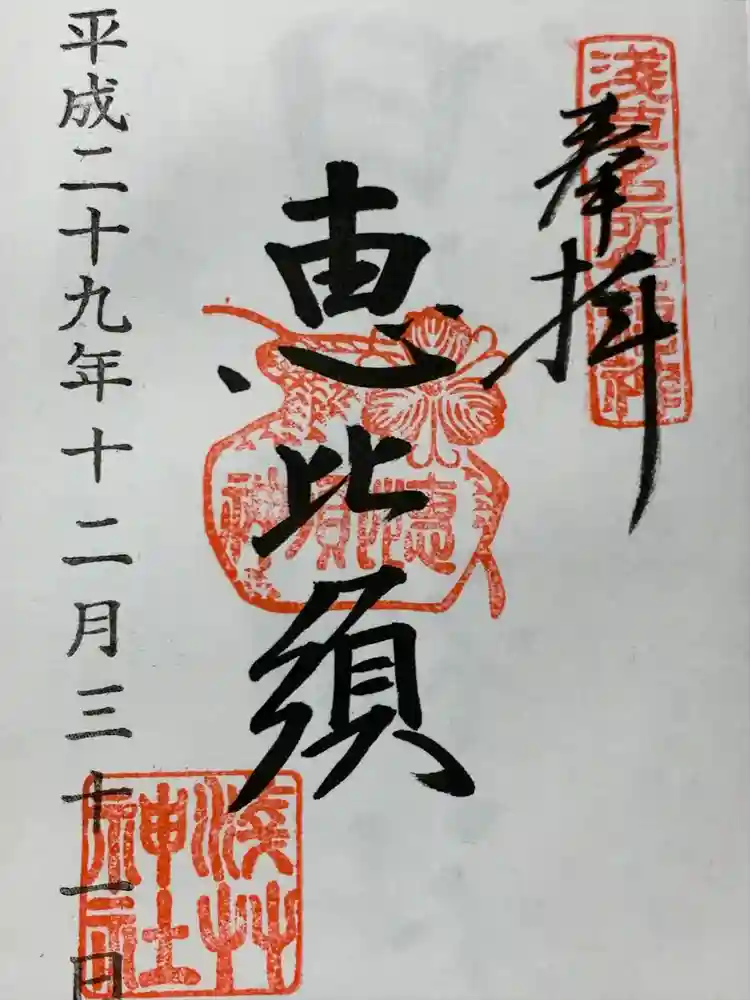 奉拝
浅草名所七福神
恵比須
恵比須神
平成二十九年十二月三十一日
浅草神社